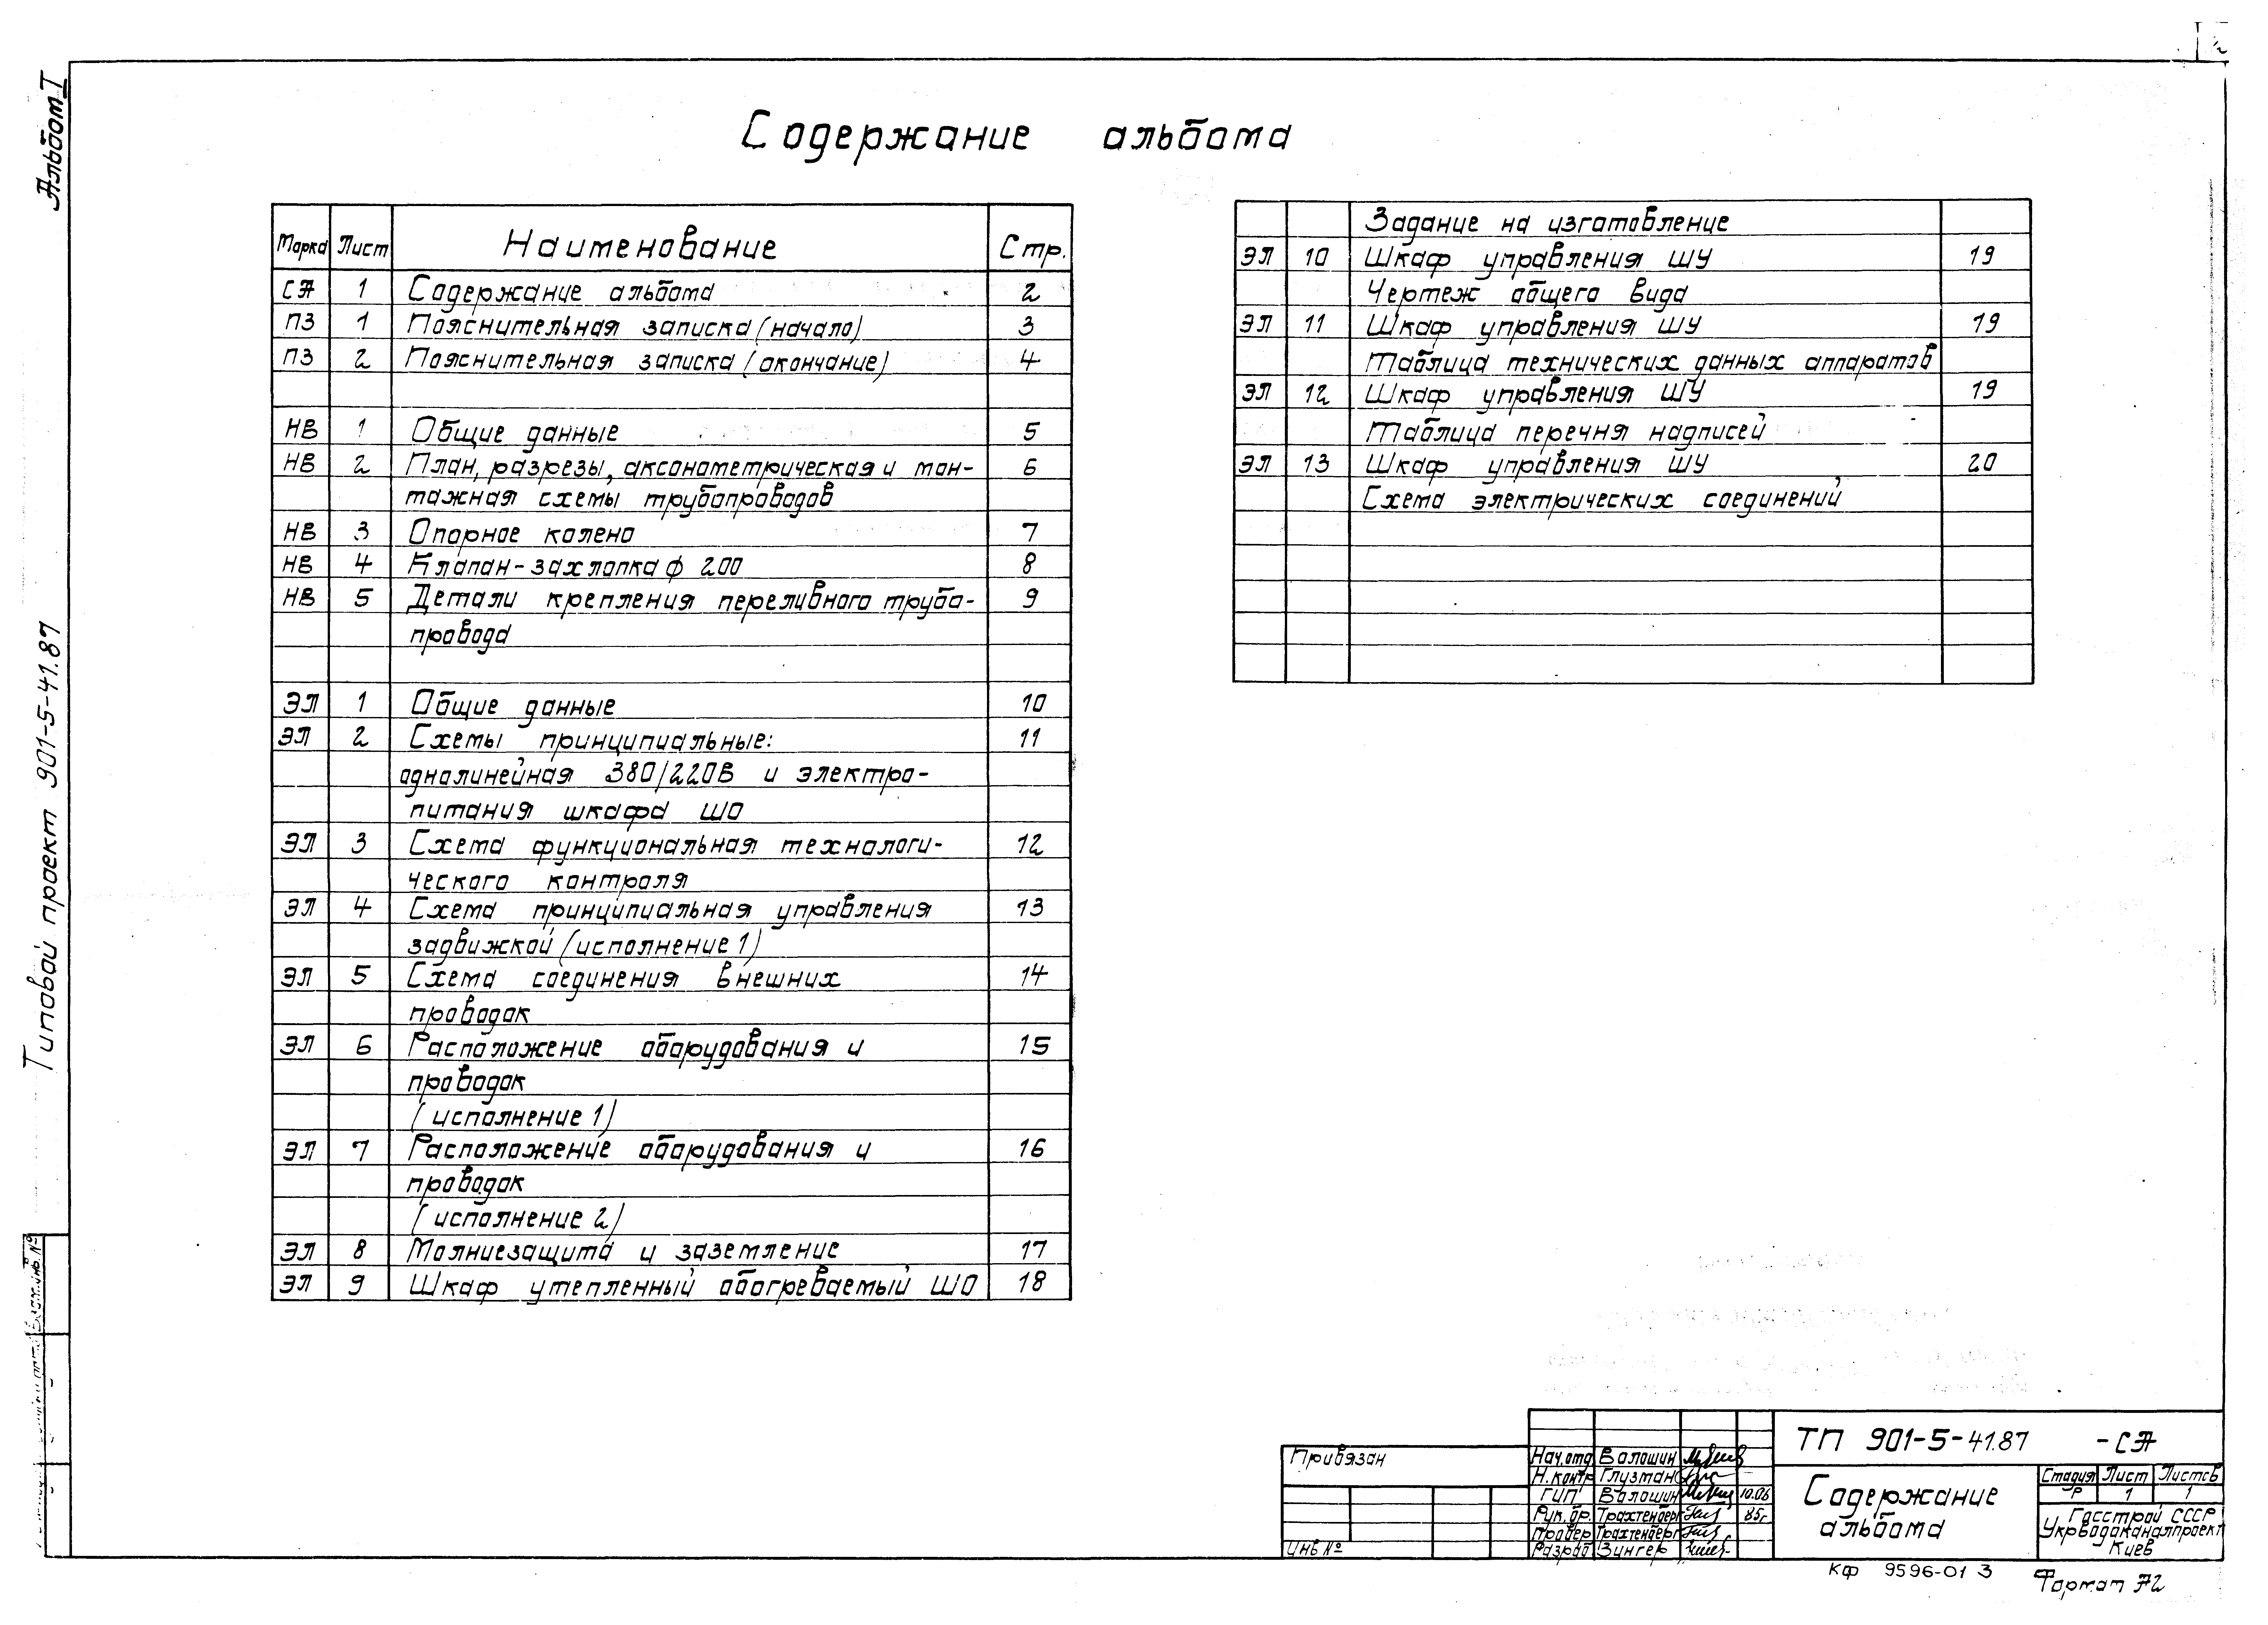 Альбом I
Содержание альбома
Марка Лист Наименование Стр.
СА 1 Содержание альбома 2
ПЗ 1 Пояснительная записка (начало) 3
ПЗ 2 Пояснительная записка (окончание) 4
НВ 1 Общие данные 5
НВ 2 План, разрезы, аксонометрическая и мон- 6
тажная схемы трубопроводов
НВ 3 Опорное колено 7
НВ 4 Клапан-захлопка ф 200 8
НВ 5 Детали крепления переливного трубо- 9
провода
ЭЛ 1 Общие данные 10
ЭЛ 2 Схемы принципиальные: 11
однолинейная 380/220В и электро-
питания шкафа ШО
ЭЛ 3 Схема функциональная технологи- 12
ческого контроля
ЭЛ 4 Схема принципиальная управления 13
задвижкой (исполнение 1)
ЭЛ 5 Схема соединения внешних 14
проводок
ЭЛ 6 Расположение оборудования и 15
проводок
(исполнение 1)
ЭЛ 7 Расположение оборудования и 16
проводок
(исполнение 2)
ЭЛ 8 Молниезащита и заземление 17
ЭЛ 9 Шкаф утепленный обогреваемый ШО 18
Задание на изготовление
ЭЛ 10 Шкаф управления ШУ 19
Чертеж общего вида
ЭЛ 11 Шкаф управления ШУ 19
Таблица технических данных аппаратов
ЭЛ 12 Шкаф управления ШУ 19
Таблица перечня надписей
ЭЛ 13 Шкаф управления ШУ 20
Схема электрических соединений
Типовой проект 901-5-41.87
Взам.инв.№
Привязан
Инв №
Нач.отд Волошин
Н.контр Глузман
ГИП Волошин 10.06
Рук.бр. Трахтенберг 85г
Провер Трахтенберг
Разраб Зингер
ТП 901-5-41.87 -СА
Содержание
альбома
Стадия Лист Листов
Р 1 1
Госстрой СССР
Укрводоканалпроект
Киев
КФ 9596-01 3
Формат А2